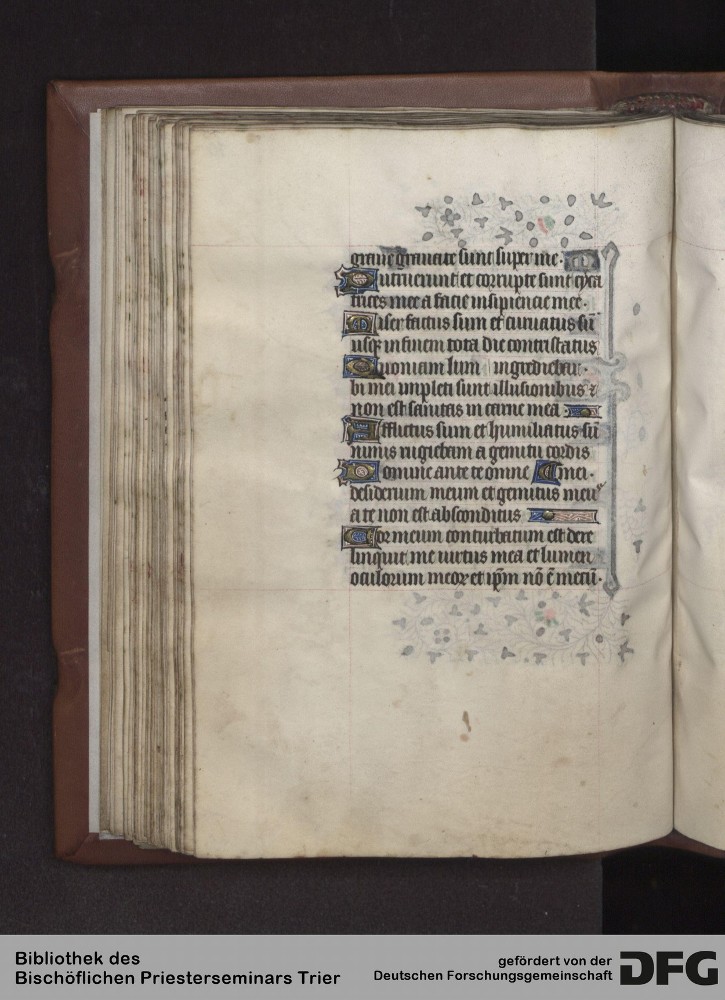 graue grauate sunt super me.
Putruerunt et corrupte sunt cyca
trices mee a facie insipiencie mee.
Miser factus sum et curuatus sũ
usqꝫ in finem tota die contristatus
Quoniam lum ingrediebar.
bi mei impleti sunt illusionibus ⁊
non est sanitas in carne mea.
Afflictus sum et humiliatus sũ
nimis rugiebam a gemitu cordis
Domine ante te omne mei.
desiderium meum et gemitus meus
a te non est absconditus
Cor meum conturbatum est dere
linquit me uirtus mea et lumen
oculorum meoꝝ et ip̃m nõ ẽ mecũ.
Bibliothek des
Bischöflichen Priesterseminars Trier
gefördert von der
Deutschen Forschungsgemeinschaft
DFG